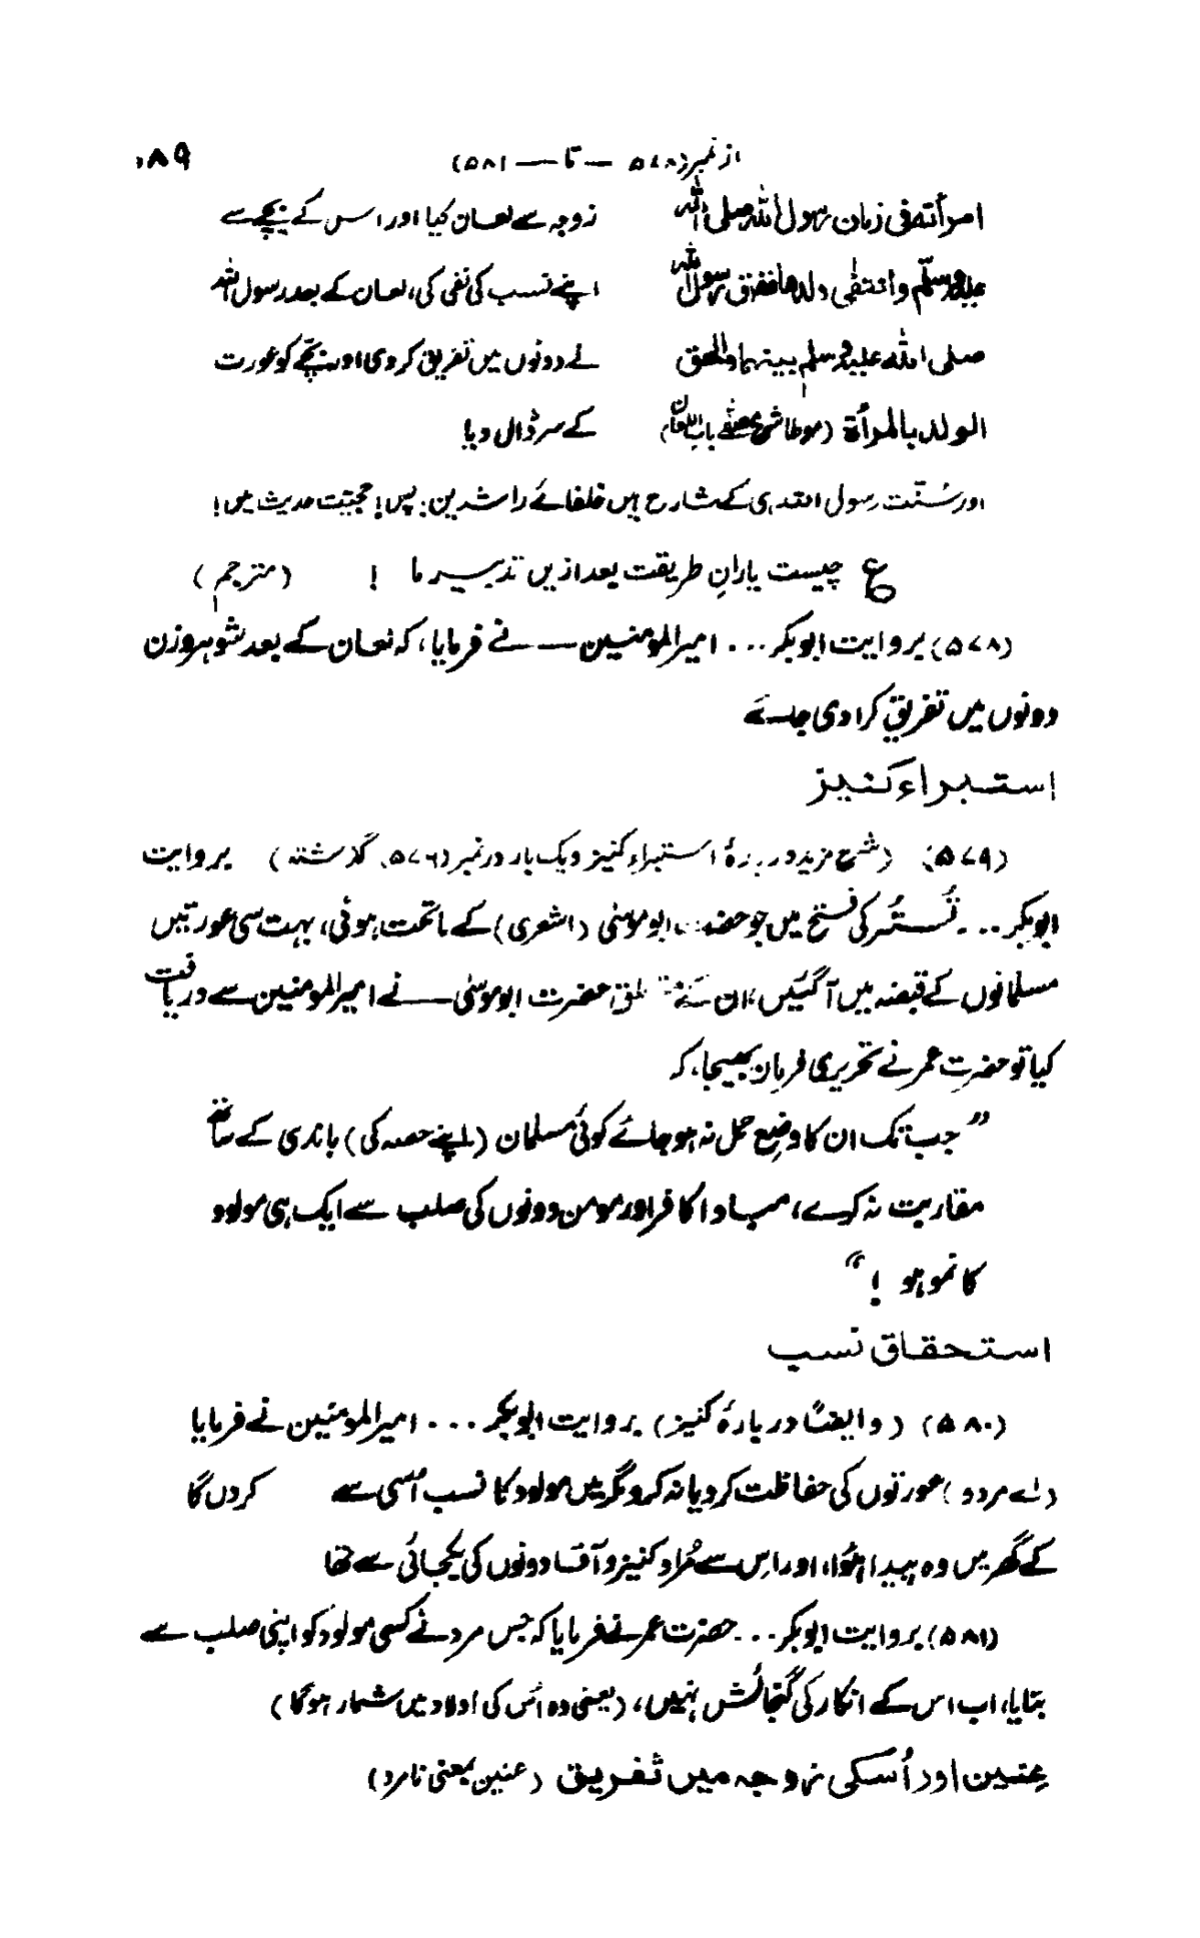 از نمبر (۵۷۸ — تا — ۵۸۱)
۱۸۹
امرأته فی زمان رسول اللہ صلی اللہ
علیہ وسلّم وانتفٰی ولدھا ففرّق رسول اللہ
صلی اللہ علیہ وسلم بینہما والحق
الولد بالمرأۃ (موطا شرح مصفّٰی باب اللعان)
زوجہ سے لعان کیا اور اس کے بچّے سے
اپنے نسب کی نفی کی، لعان کے بعد رسول اللہ
نے دونوں میں تفریق کر دی اور بچّے کو عورت
کے سر ڈال دیا!
اور سُنّت رسول اللہ ہی کے شارح ہیں خلفائے راشدین: پس! حجیّت حدیث میں!
ع چیست یارانِ طریقت بعد ازیں تدبیر ما ! (مترجم)
(۵۷۸) بروایت ابو بکر ... امیر المومنین —— نے فرمایا، کہ لعان کے بعد شوہر وزن
دونوں میں تفریق کرا دی جائے
استبراء کنیز
(۵۷۹) (شرح مزید در بارۂ استبراءِ کنیز ویک بار در نمبر (۵۷۶، گذشتہ) بروایت
ابوبکر ... تُستُر کی فتح میں جو حضرت ابو موسٰی (اشعری) کے ماتحت ہوئی، بہت سی عورتیں
مسلمانوں کے قبضہ میں آ گئیں، ان کے متعلق حضرت ابو موسٰی —— نے امیر المومنین سے دریافت
کیا تو حضرتِ عمر نے تحریری فرمان بھیجا، کہ
” جب تک ان کا وضعِ حمل نہ ہو جائے کوئی مسلمان (اپنے حصہ کی) باندی کے ساتھ
مقاربت نہ کرے، مبادا کافر اور مومن دونوں کی صلب سے ایک ہی مولود
کا نمو ہو ! “
استحقاق نسب
(۵۸۰) (وایضًا در بارۂ کنیز) بروایت ابوبکر ... امیر المومنین نے فرمایا
(اے مردو) عورتوں کی حفاظت کرو یا نہ کرو مگر میں مولود کا نسب اُسی سے کردں گا
کے گھر میں وہ پیدا ہُوا، اور اس سے مُراد کنیز و آقا دونوں کی یکجائی سے تھا
(۵۸۱) بروایت ابو بکر ... حضرت عمر نے فرمایا کہ جس مرد نے کسی مولود کو اپنی صلب سے
بتایا، اب اس کے انکار کی گنجائش نہیں، (یعنی وہ اُس کی اولاد میں شمار ہوگا)
عنین اور اُسکی زوجہ میں تفریق (عنین بمعنی نامرد)